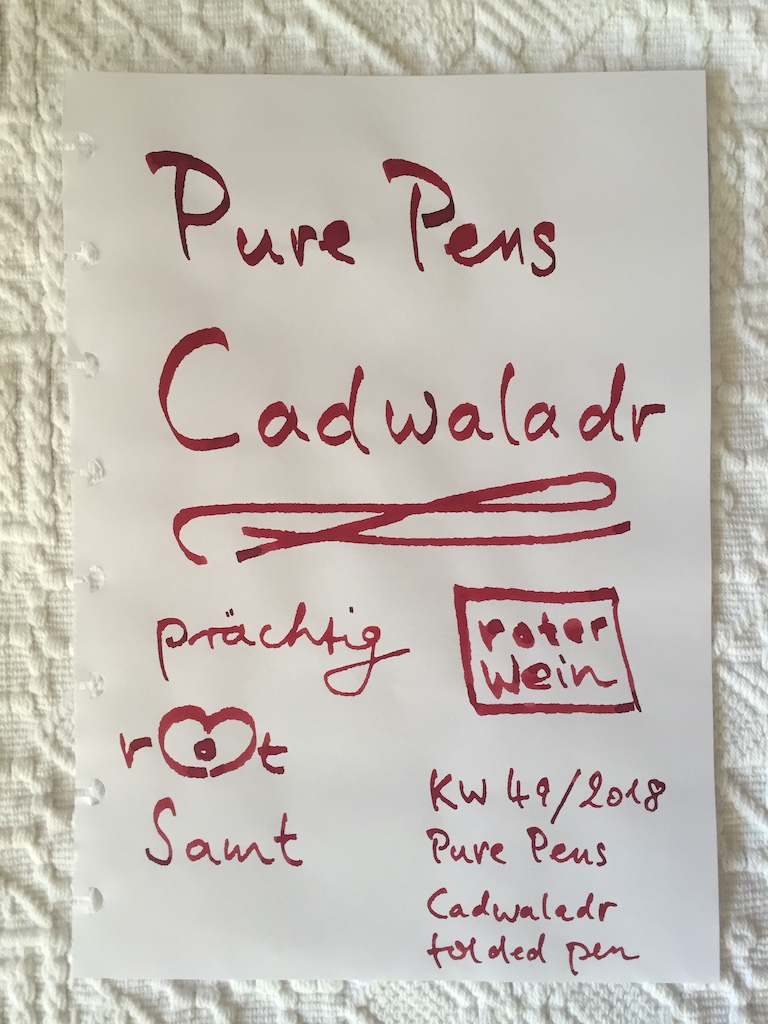 Pure Pens
Cadwaladr
prächtig
roter
Wein
rot
Samt
KW 49/2018
Pure Pens
Cadwaladr
folded pen